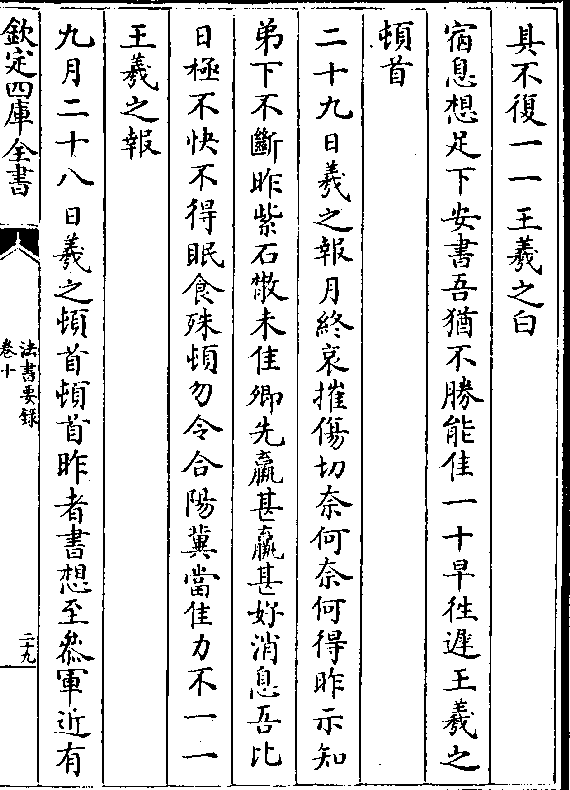 具不復一一王羲之白
宿息想足下安書吾猶不勝能佳一十早徃遲王羲之
頓首
二十九日羲之報月終哀摧傷切奈何奈何得昨示知
弟下不斷昨紫石散未佳卿先羸甚羸甚好消息吾比
日極不快不得眠食殊頓勿令合陽冀當佳力不一一
王羲之報
九月二十八日羲之頓首頓首昨者書想至叅軍近有
欽定四庫全書
法書要録
卷十
二十九